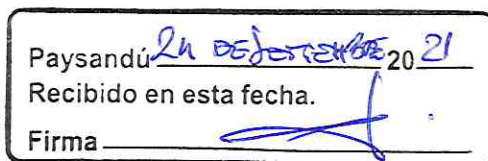 Paysandú 24 DE SETIEMBRE 20 21
Recibido en esta fecha.
Firma